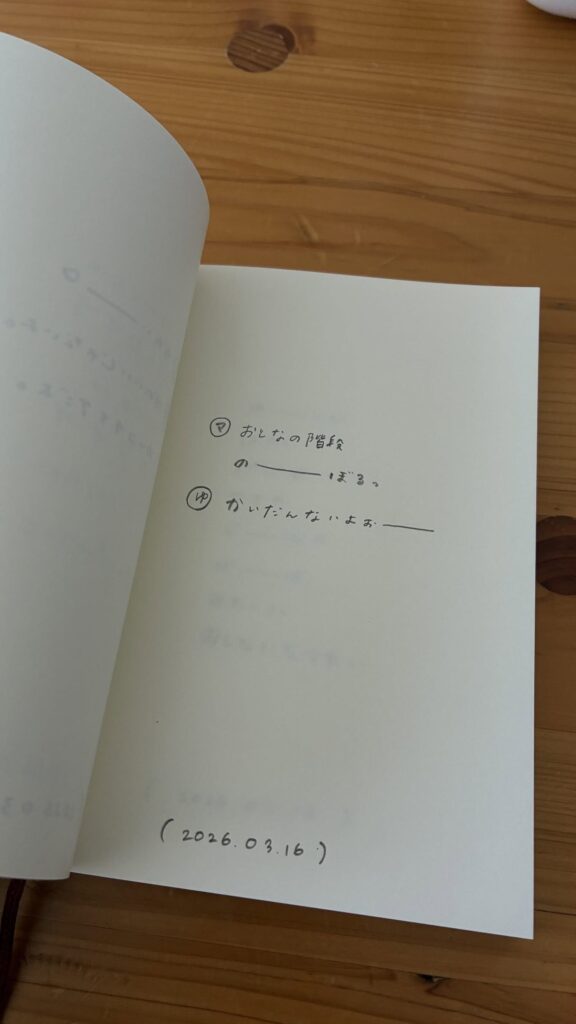 ㋮ おとなの階段
の――ぼる。
ゆ かいだんないよぉ――
(2026.03.16)